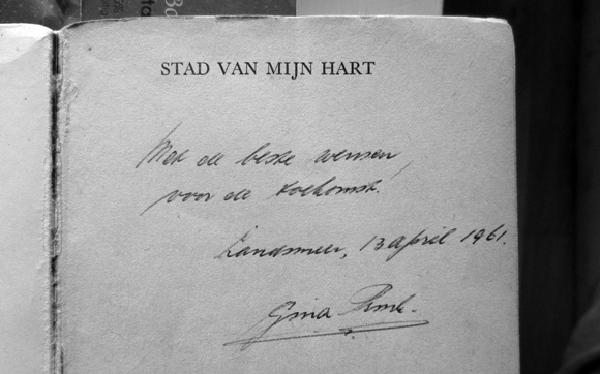 STAD VAN MIJN HART
Met de beste wensen
voor de toekomst!
Landsmeer, 13 april 1961.
Gina